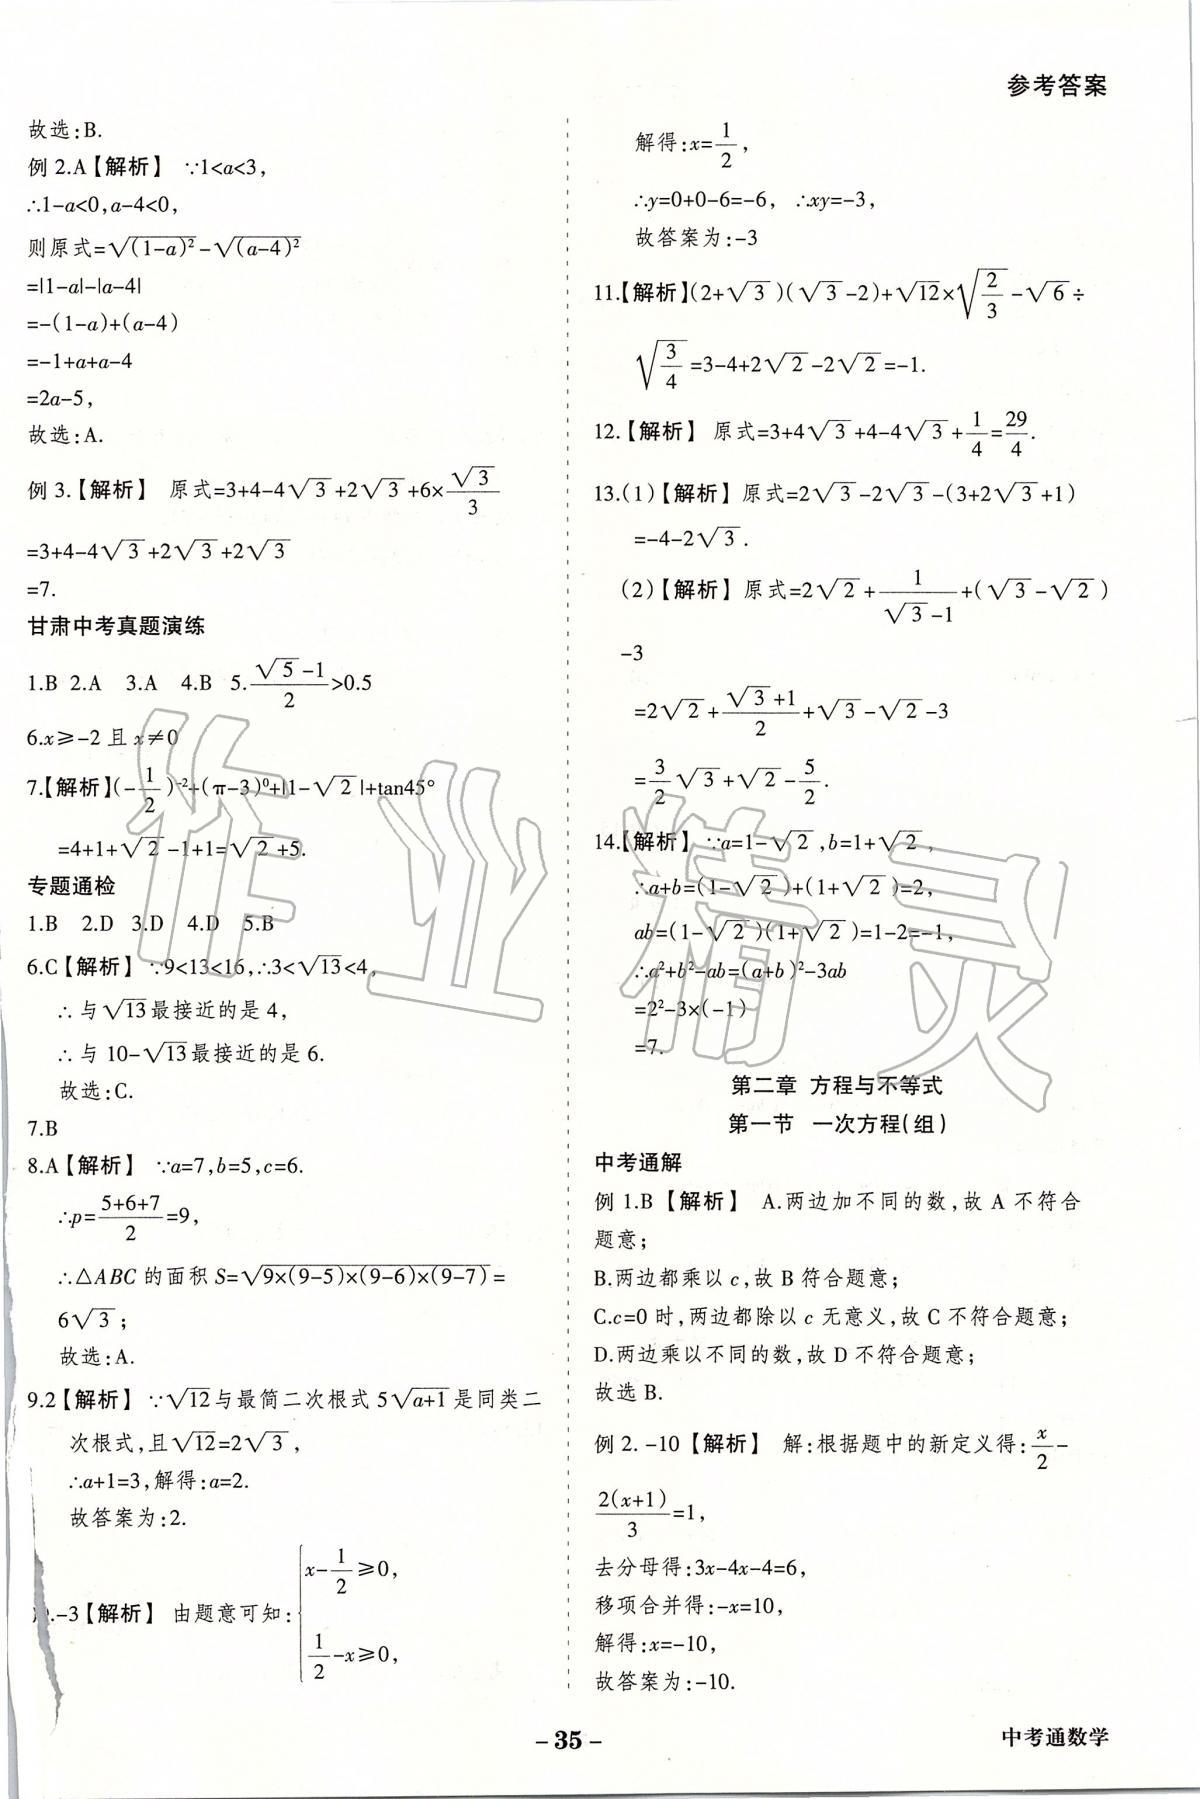 参考答案
故选:B.
例 2.A【解析】 ∵1<a<3,
∴1-a<0,a-4<0,
则原式=√(1-a)²-√(a-4)²
=|1-a|-|a-4|
=-(1-a)+(a-4)
=-1+a+a-4
=2a-5,
故选:A.
例 3.【解析】 原式=3+4-4√3+2√3+6×√3/3
=3+4-4√3+2√3+2√3
=7.
甘肃中考真题演练
1.B 2.A 3.A 4.B 5.(√5-1)/2>0.5
6.x≥-2 且 x≠0
7.【解析】(-1/2)⁻²+(π-3)⁰+|1-√2|+tan45°
=4+1+√2-1+1=√2+5.
专题通检
1.B 2.D 3.D 4.D 5.B
6.C【解析】 ∵9<13<16,∴3<√13<4,
∴与√13最接近的是 4,
∴与 10-√13最接近的是 6.
故选:C.
7.B
8.A【解析】 ∵a=7,b=5,c=6.
∴p=(5+6+7)/2=9,
∴△ABC 的面积 S=√9×(9-5)×(9-6)×(9-7)=
6√3;
故选:A.
9.2【解析】 ∵√12与最简二次根式 5√a+1是同类二
次根式,且√12=2√3,
∴a+1=3,解得:a=2.
故答案为:2.
.-3【解析】 由题意可知:{x-1/2≥0,
1/2-x≥0,
解得:x=1/2,
∴y=0+0-6=-6, ∴xy=-3,
故答案为:-3
11.【解析】(2+√3)(√3-2)+√12×√2/3-√6÷
√3/4=3-4+2√2-2√2=-1.
12.【解析】 原式=3+4√3+4-4√3+1/4=29/4.
13.(1)【解析】 原式=2√3-2√3-(3+2√3+1)
=-4-2√3.
(2)【解析】 原式=2√2+1/(√3-1)+(√3-√2)
-3
=2√2+(√3+1)/2+√3-√2-3
=3/2√3+√2-5/2.
14.【解析】 ∵a=1-√2,b=1+√2,
∴a+b=(1-√2)+(1+√2)=2,
ab=(1-√2)(1+√2)=1-2=-1,
∴a²+b²-ab=(a+b)²-3ab
=2²-3×(-1)
=7.
第二章 方程与不等式
第一节 一次方程(组)
中考通解
例 1.B【解析】 A.两边加不同的数,故 A 不符合
题意;
B.两边都乘以 c,故 B 符合题意;
C.c=0 时,两边都除以 c 无意义,故 C 不符合题意;
D.两边乘以不同的数,故 D 不符合题意;
故选 B.
例 2. -10【解析】 解:根据题中的新定义得:x/2-
2(x+1)/3=1,
去分母得:3x-4x-4=6,
移项合并得:-x=10,
解得:x=-10,
故答案为:-10.
- 35 -
中考通数学
作业精灵